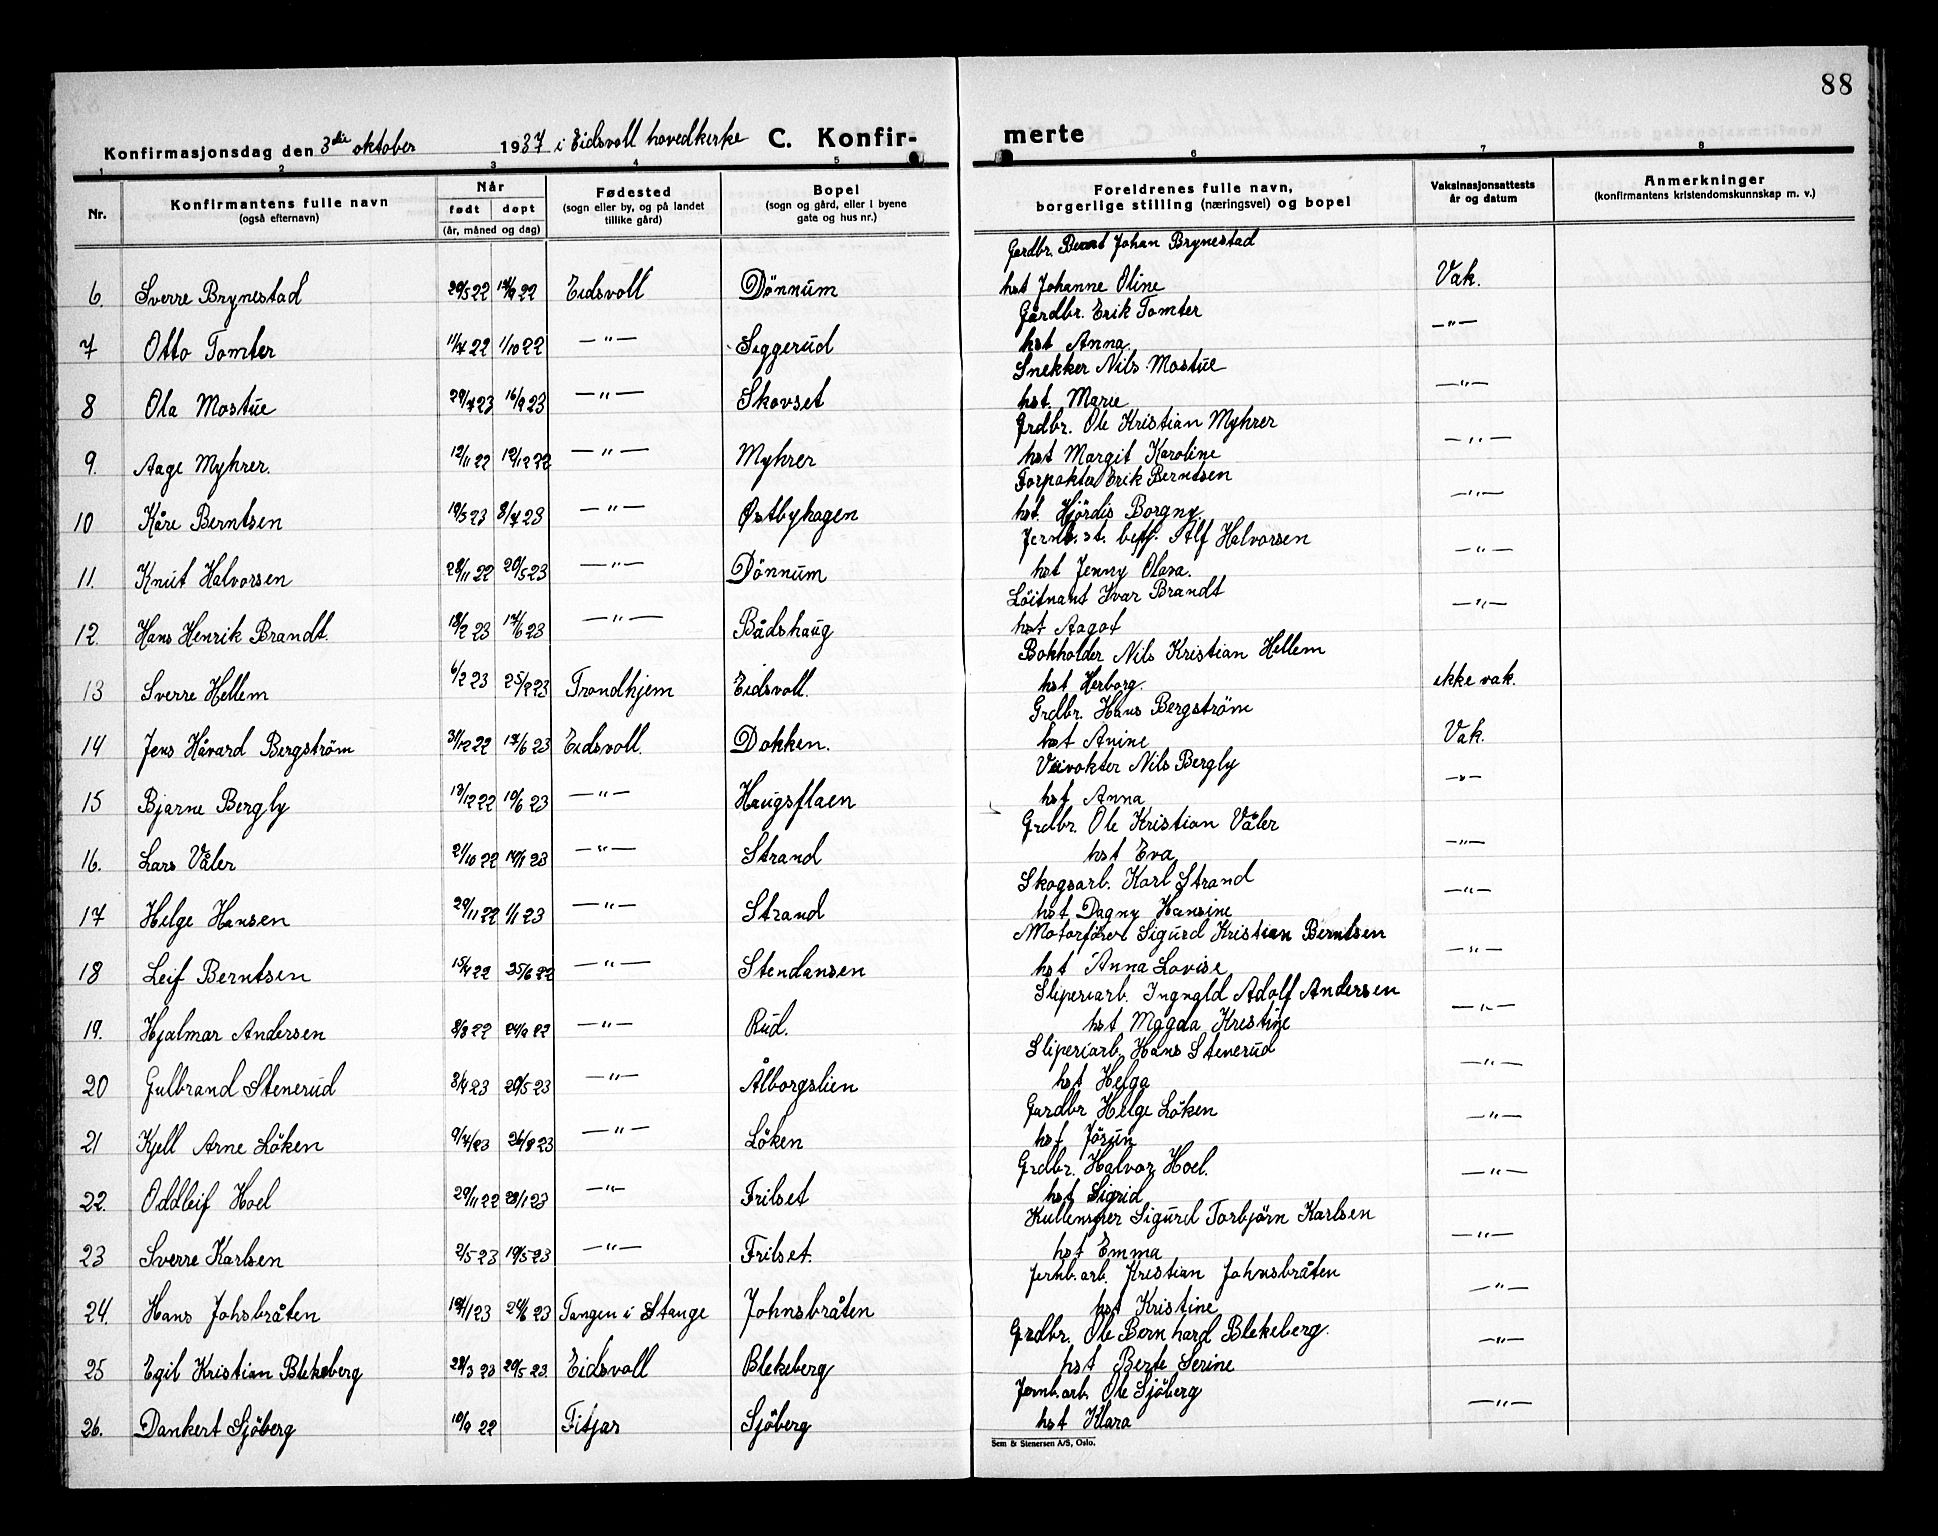 88
Konfirmasjonsdag den 3die oktober 1937 i Eidsvoll hovedkirke C. Konfir- merte
1 2 3 4 5 6 7 8
Nr. Konfirmantens fulle navn (også efternavn) Når født døpt (år, måned og dag) Fødested (sogn eller by, og på landet tillike gård) Bopel (sogn og gård, eller i byene gate og hus nr.) Foreldrenes fulle navn, borgerlige stilling (næringsvei) og bopel Vaksinasjonsattests år og datum Anmerkninger (konfirmantens kristendomskunnskap m. v.)
Gardbr. Bernt Johan Brynestad
6. Sverre Brynestad 29/5 22 17/9 22 Eidsvoll Dönnum hst Johanne Oline Vak.
Gårdbr. Erik Tomter
7 Otto Tomter 11/7 22 1/10 22 —"— Siggerud hst Anna. —"—
Snekker Nils Mostue
8 Ola Mostue 29/7 23 16/9 23 —"— Skovset hst. Marie —"—
Grdbr. Ole Kristian Myhrer
9. Aage Myhrer. 12/11 22 12/12 22 —"— Myhrer hst Margit Karoline —"—
Forpakter Erik Berntsen
10 Kåre Berntsen 19/5 23 8/7 23 —"— Østbyhagen hst. Hjördis Borgny —"—
Jernb. st. betj. Alf Halvorsen
11. Knut Halvorsen 28/11 22 20/5 23 —"— Dönnum hst Jenny Olava. —"—
Löitnant Ivar Brandt
12. Hans Henrik Brandt. 18/2 23 17/6 23 —"— Bådshaug hst Aagot —"—
Bokholder Nils Kristian Hellem
13 Sverre Hellem 6/2 23 25/2 23 Trondhjem Eidsvoll. hst Herborg. ikke vak.
Grdbr. Hans Bergström
14 Jens Håvard Bergström 31/12 22 17/6 23 Eidsvoll. Dokken. hst Anine Vak.
Veivokter Nils Bergly
15 Bjarne Bergly 13/12 22 10/6 23 —"— Haugsflaen hst Anna —"—
Grdbr. Ole Kristian Våler
16. Lars Våler 21/10 22 14/1 23 —"— Strand hst Eva —"—
Skogsarb. Karl Strand
17 Helge Hansen 29/11 22 1/1 23 —"— Strand hst Dagny Hansine —"—
Motorfører Sigurd Kristian Berntsen
18 Leif Berntsen 15/4 22 25/6 22 —"— Stendansen hst Anna Lovise —"—
Sliperiarb. Ingvald Adolf Andersen
19. Hjalmar Andersen 8/8 22 24/9 22 —"— Rud. hst Magda Kristine —"—
Sliperiarb. Hans Stenerud
20 Gulbrand Stenerud 3/4 23 20/5 23 —"— Ålborgslien hst Helga —"—
Gardbr Helge Löken
21 Kjell Arne Löken 9/7 23 26/8 23 —"— Löken hst Jörun —"—
Grdbr. Halvor Hoel.
22. Oddleif Hoel 29/11 22 28/1 23 —"— Frilset hst Sigrid —"—
Sigurd Torbjörn Karlsen
23 Sverre Karlsen 2/5 23 19/5 23 —"— Frilset. hst Emma —"—
Jernb. arb. Kristian Johnsbråten
24. Hans Johsbråten 17/1 23 24/6 23 Tangen i Stange Johnsbråten hst Kristine —"—
Grdbr. Ole Bernhard Blekeberg.
25 Egil Kristian Blekeberg 28/3 23 20/5 23. Eidsvoll Blekeberg hst Berte Serine —"—
Jernb. arb. Ole Sjöberg
26. Dankert Sjöberg 10/9 22 Fitjar Sjöberg hst Klara —"—
Sem & Stenersen A/S, Oslo.